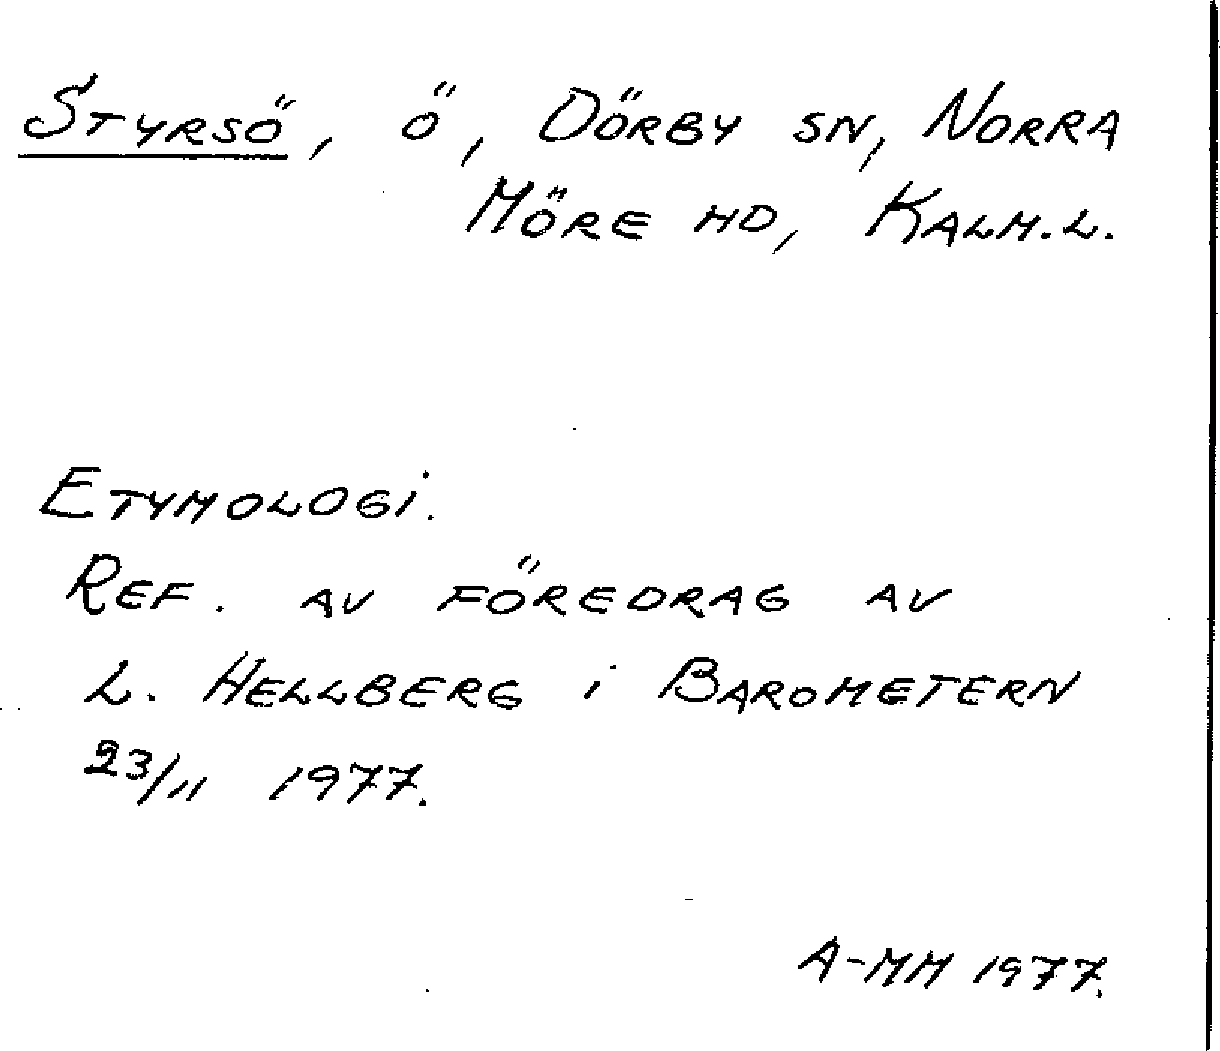 Styrsö, ö, Dörby sn, Norra
Möre hd, Kalm.l.
Etymologi.
Ref. av föredrag av
L. Hellberg i Barometern
23/11 1977.
A-MM 1977.